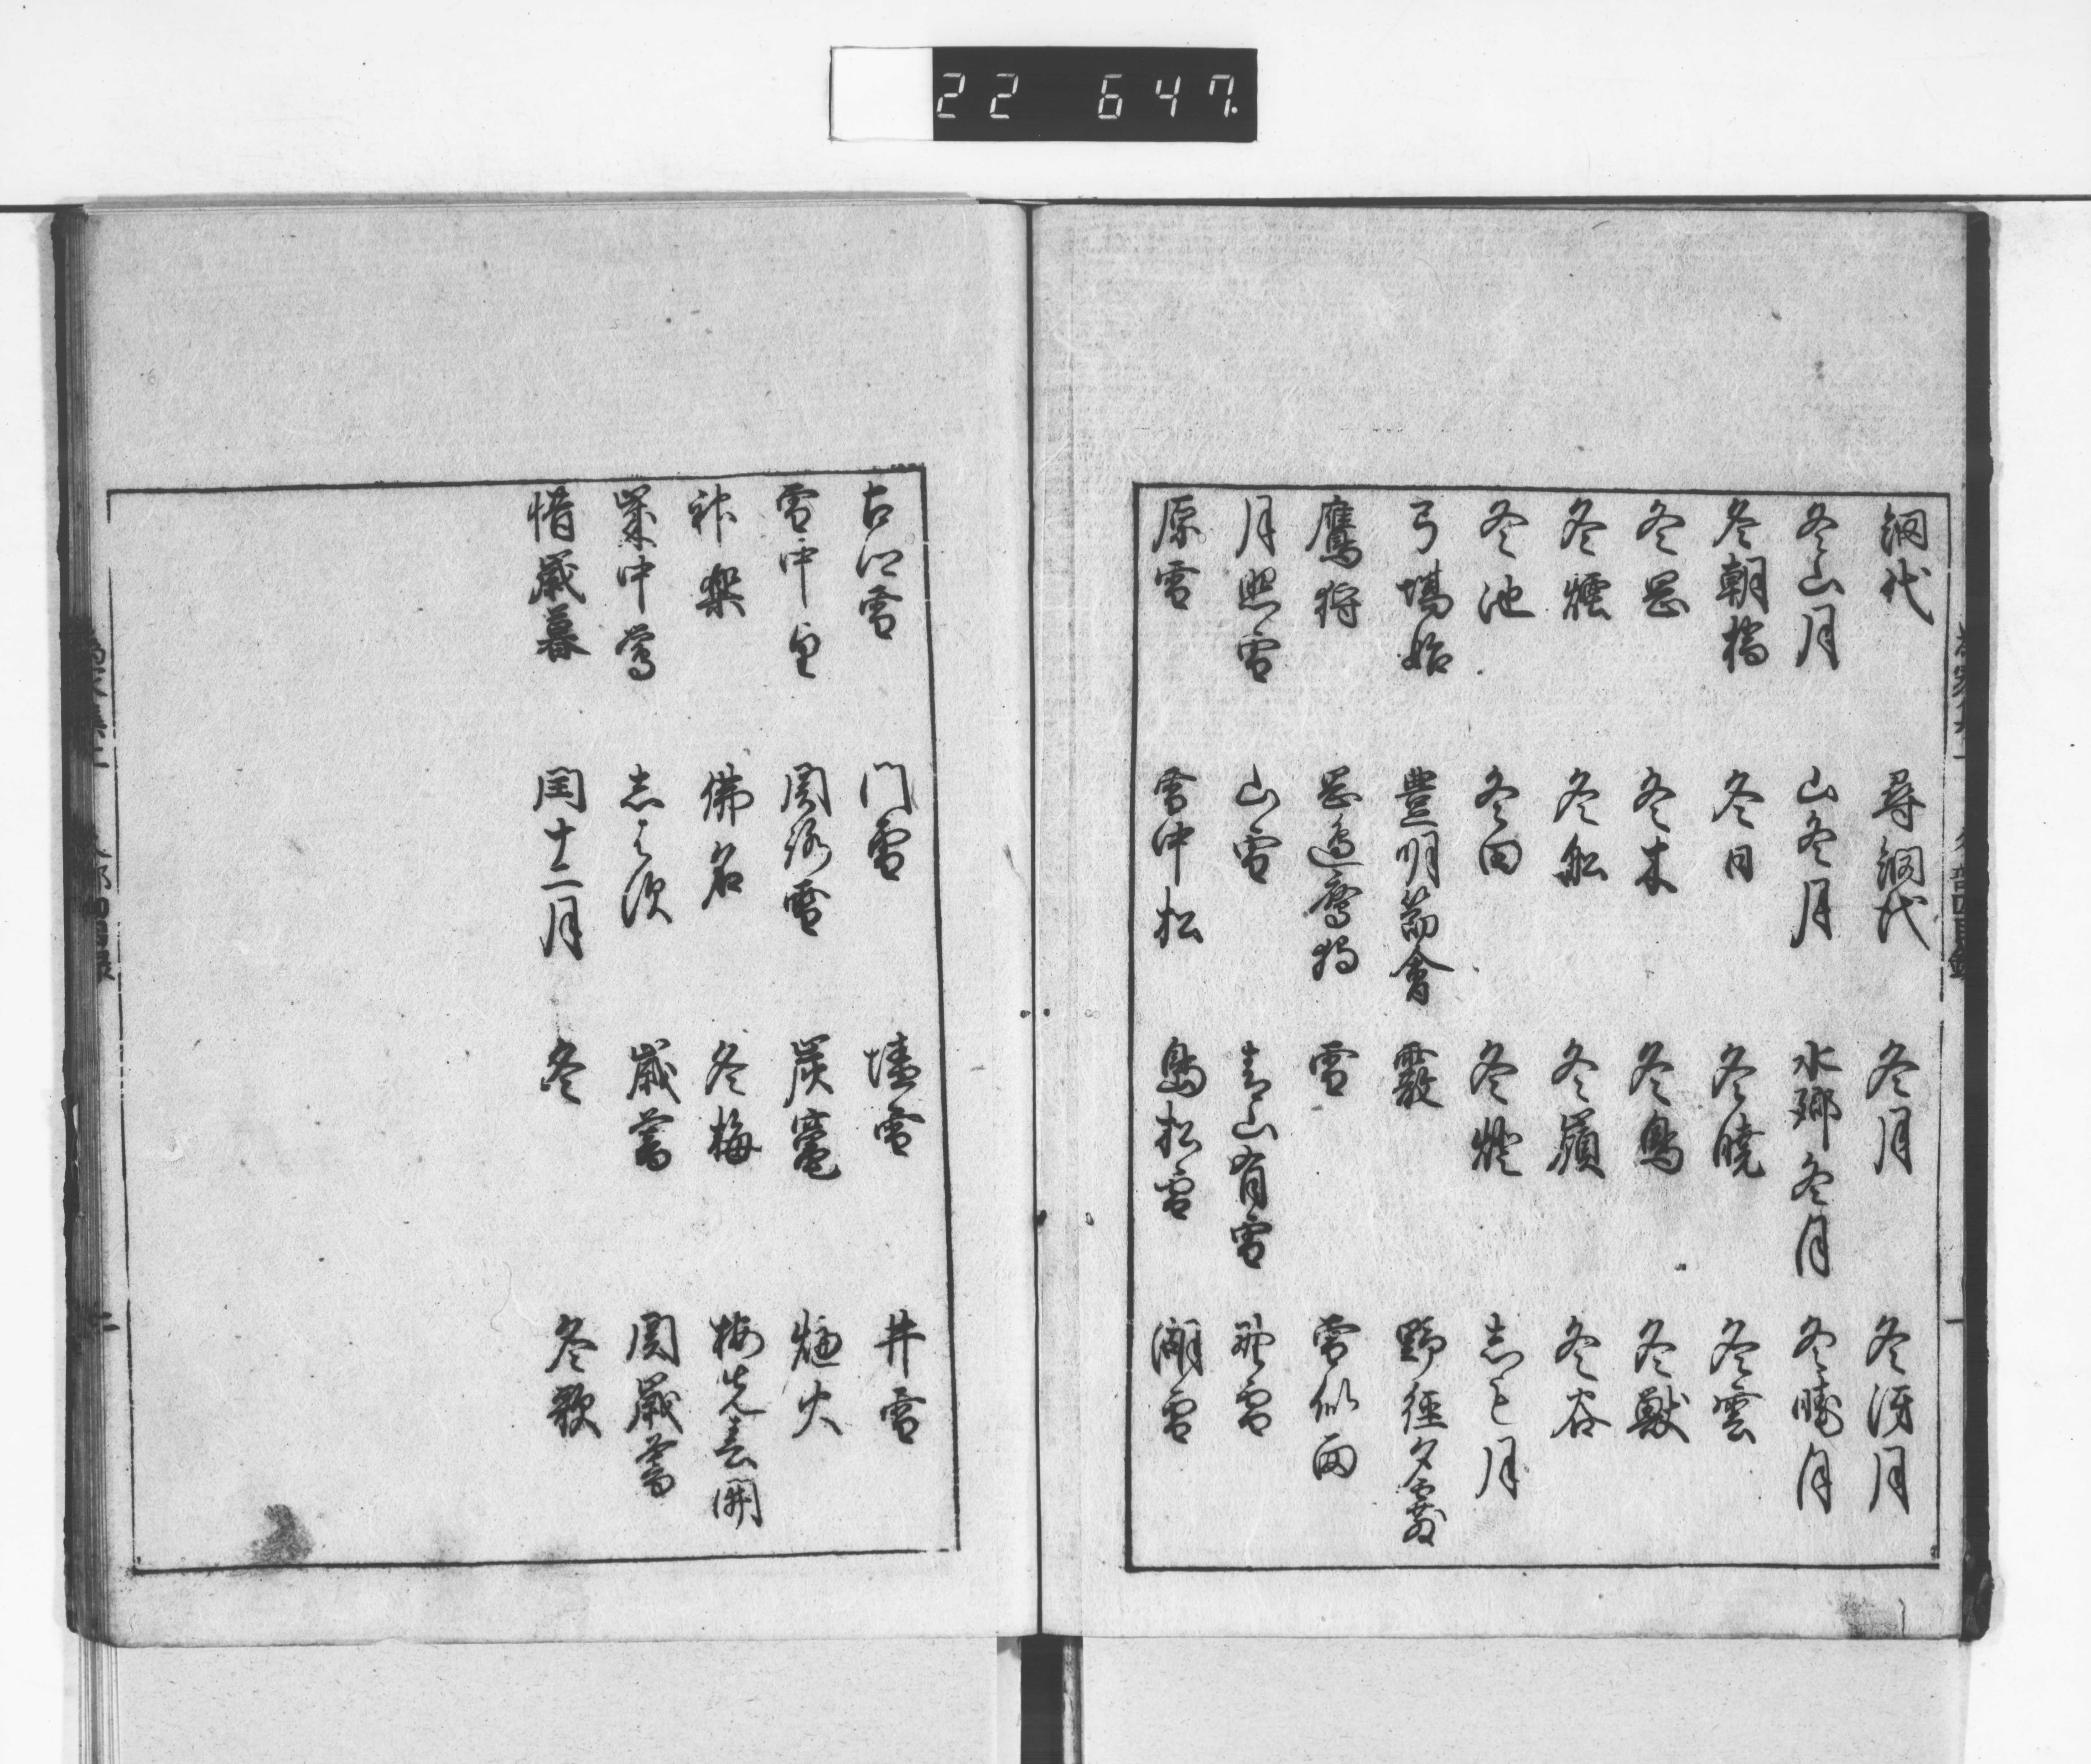 22 647.
網代 尋網代 冬月 冬河月
冬山月 山冬月 水郷冬月 冬暁月
冬朝橋 冬日 冬暁 冬雲
冬岡 冬木 冬鳥 冬獣
冬烟 冬船 冬嶺 冬谷
冬池 冬田 冬燈 志も月
弓場始 豊明節會 霰 野徑夕霰
鷹狩 岡邊鷹狩 雪 雪似雨
月照雪 山雪 青山有雪 野雪
原雪 雪中松 島松雪 湖雪
古江雪 門雪 墻雪 井雪
雪中 関路雪 炭竈 爐火
神樂 佛名 冬梅 梅先春開
臘中鶯 志はす 歳暮 関歳暮
惜歳暮 閏十二月 冬 冬歌
二